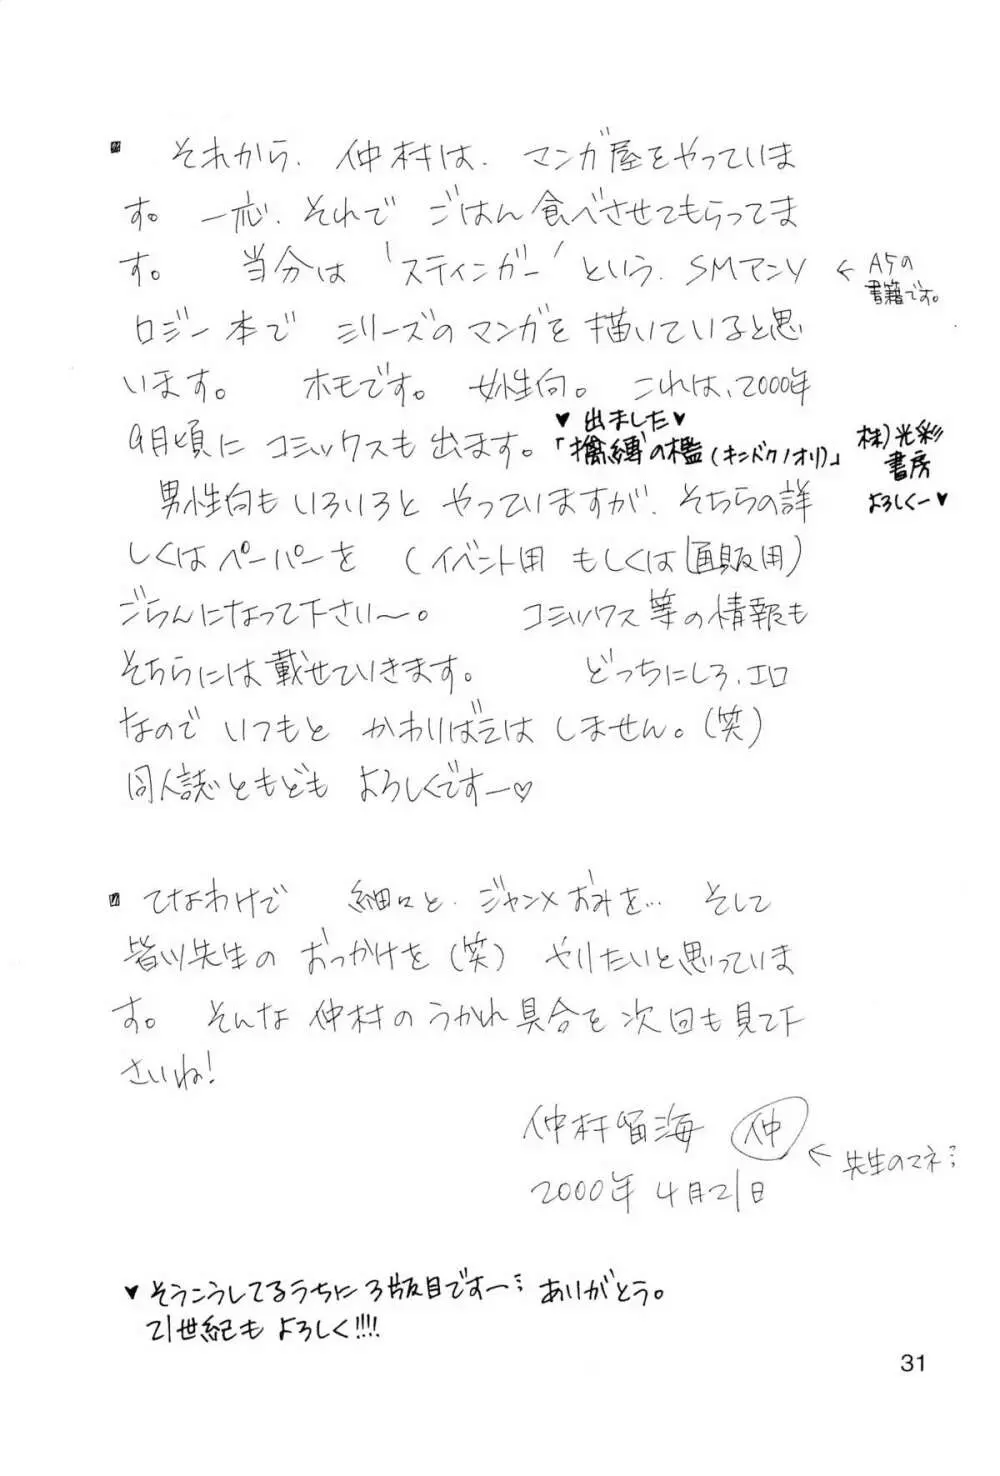 ■ それから、仲村は、マンガ屋をやっていま
す。一応、それで ごはん食べさせてもらってま
す。 当分は 'スティンガー' という、SMアンソ ← A5の
書籍です。
ロジー本で シリーズのマンガを描いていると思
います。 ホモです。 女性向。 これは、2000年
♥ 出ました ♥
9月頃に コミックスも出ます。「擒縛の檻(キンバクノオリ)」 株)光彩
書房
よろしくー♥
男性向も いろいろと やっていますが、そちらの詳
しくは ペーパーを (イベント用 もしくは 通販用)
ごらんになって下さい〜。 コミックス等の情報も
そちらには載せていきます。 どっちにしろ、エロ
なので いつもと かわりばえは しません。(笑)
同人誌ともども よろしくですー♡
■ てなわけで 細々と、ジャン×おみを… そして
皆川先生の おっかけを (笑) やりたいと思っていま
す。 そんな 仲村の うかれ具合を 次回も見て下
さいね!
仲村留海 仲 ← 先生のマネ…
2000年 4月21日
♥ そうこうしてるうちに 3版目ですー… ありがとう。
21世紀も よろしく!!!!
31